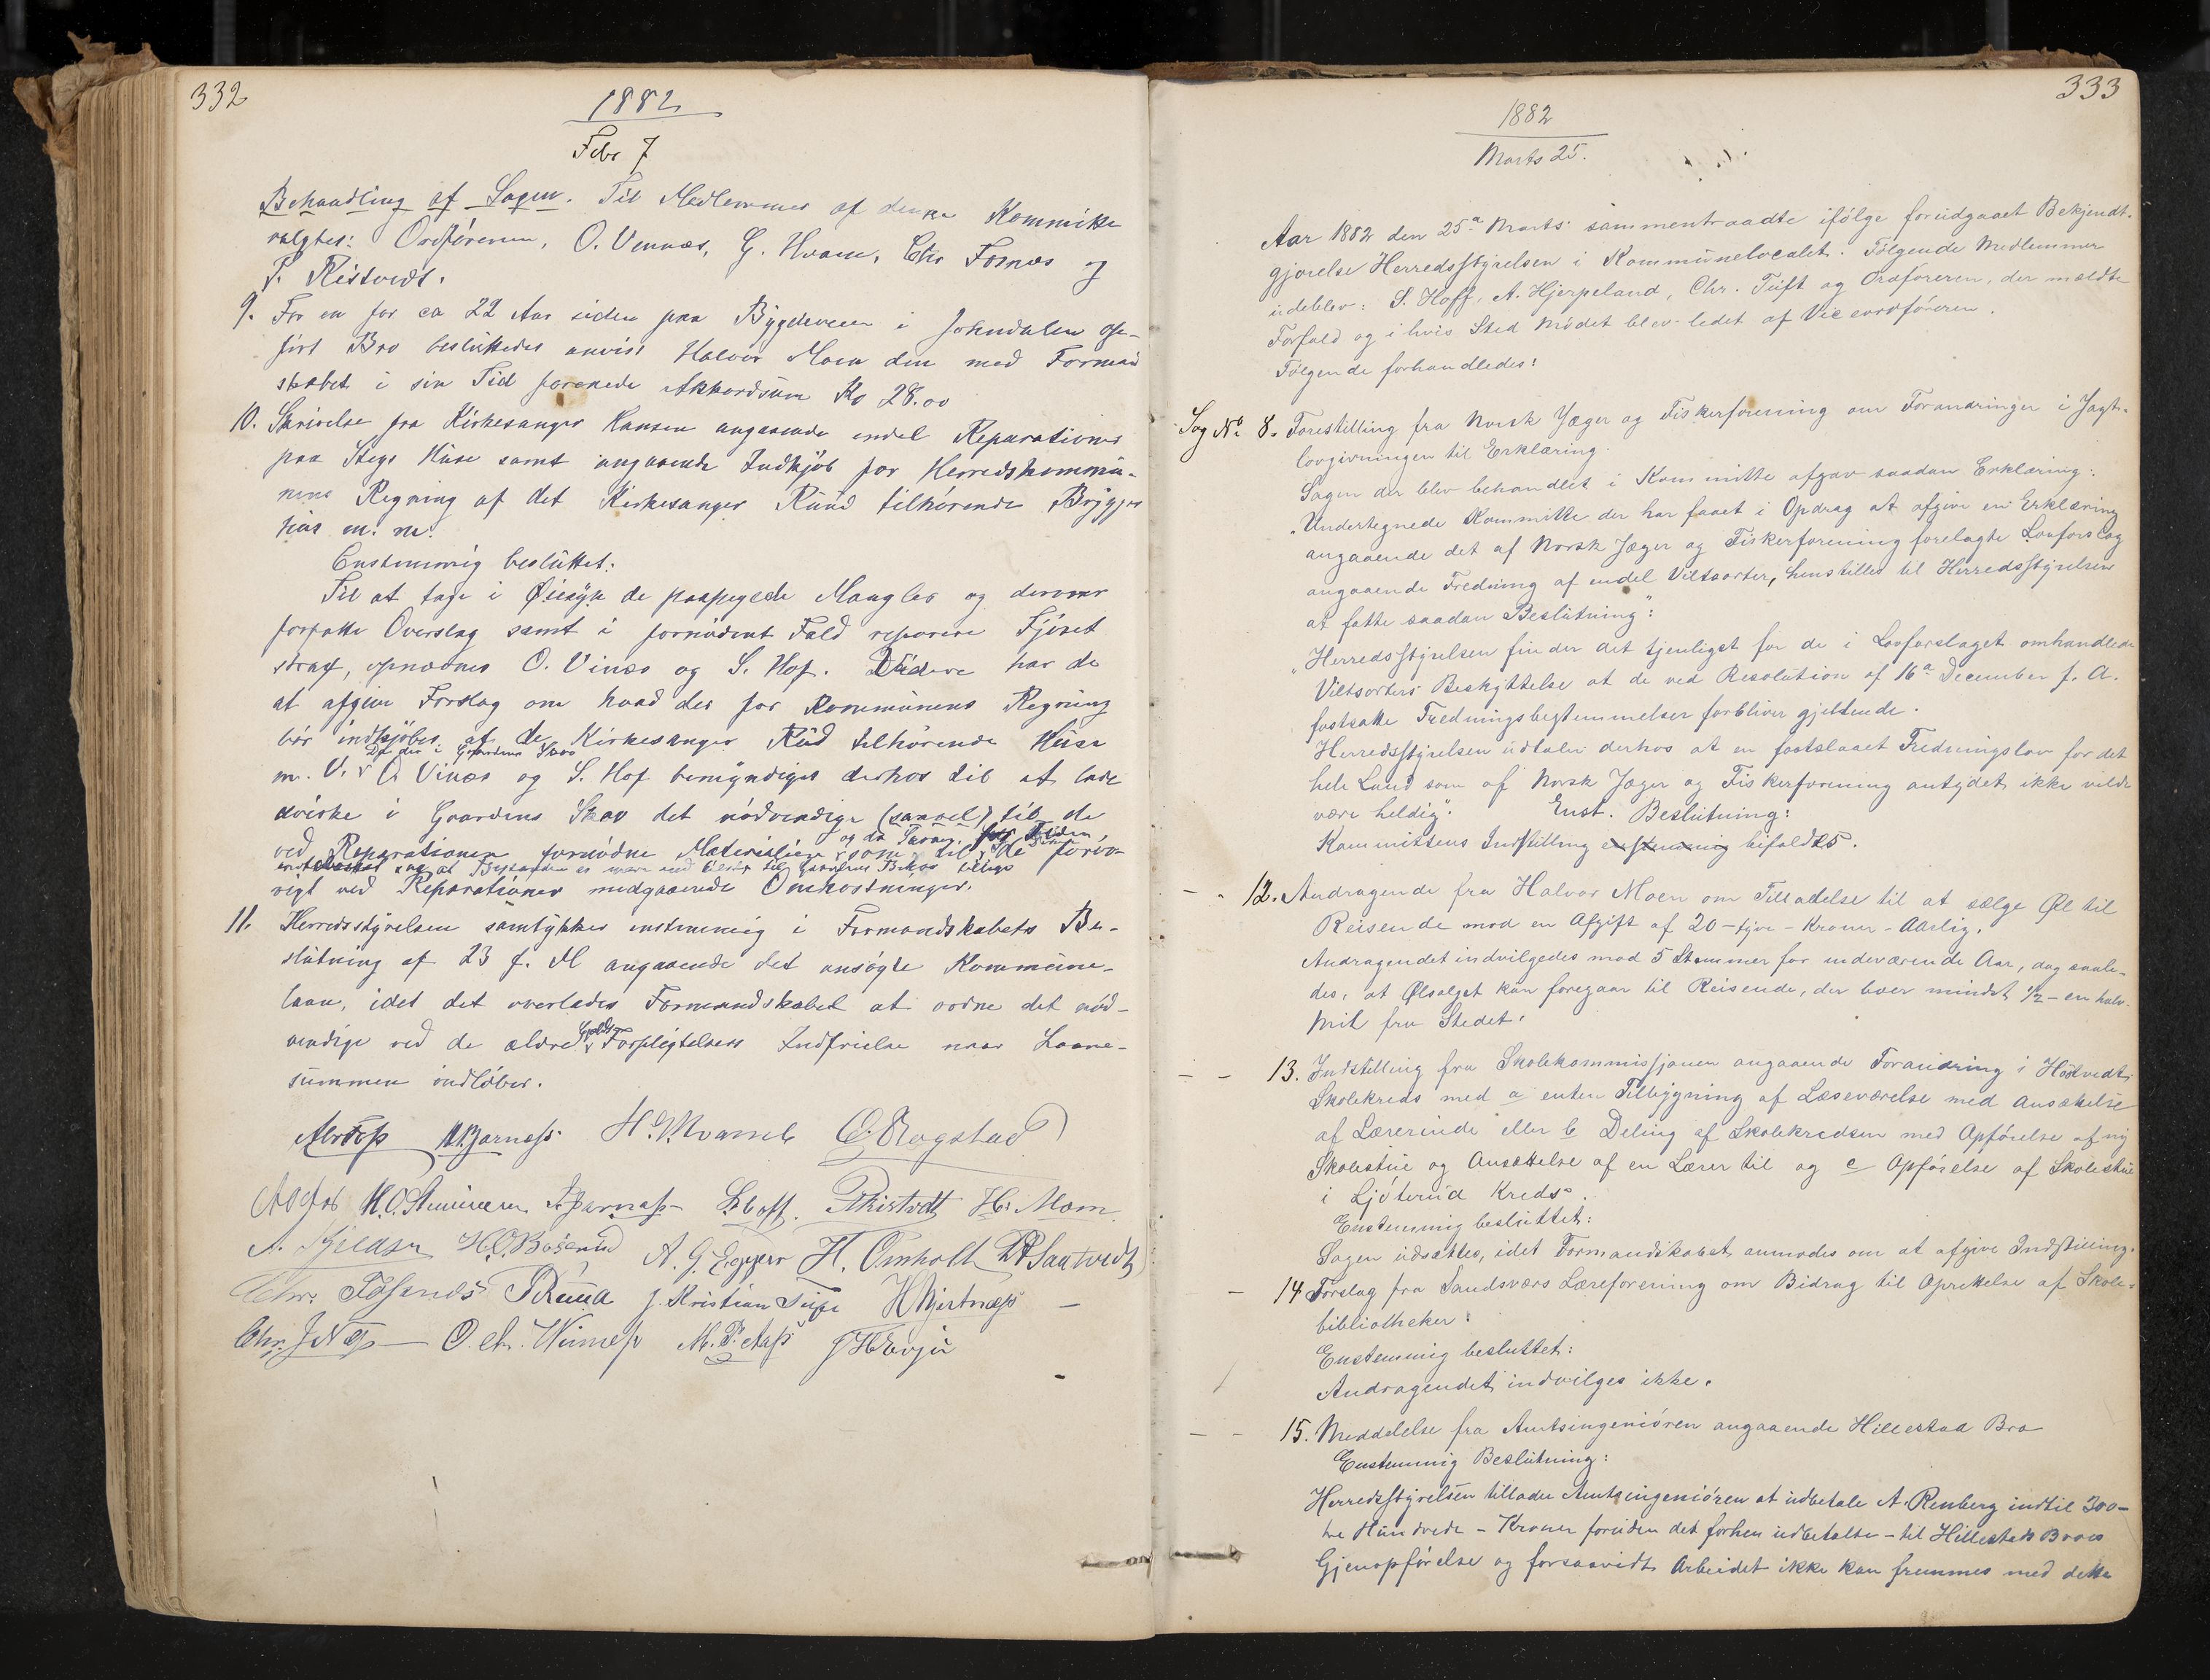 332
1882
Febr 7
Behandling af Sagen. Til Medlemmer af denne Kommitte
valgtes: Ordføreren, O. Vennæs, G. Hvam, Chr Fosnæs og
P. Ristvedt.
9. For en for ca 22 Aar siden paa Bygdeveien i Jondalen op-
ført Bro besluttedes anvist Halvor Moen den med Formand
skabet i sin Tid forenede Akkordsum Kr 28.00
10. Skrivelse fra Kirkesanger Hansen angaaende endel Reparationer
paa Stegs Huse samt angaaende Indkjøb for Herredskommu-
nens Regning af det Kirkesanger Ruud tilhørende Brygger
hus m. m.
Enstemmig besluttet:
Til at tage i Øiesyn de paapegede Mangler og derover
forfatte Overslag samt i fornødent Fald reparere Fjøset
strax, opnævnes O. Vinæs og S. Hof. Videre har de
at afgive Forslag om hvad der for Kommunens Regning
bør indkjøbes af de Kirkesanger Rud tilhørende Huse
m. V. O. Vinæs og S. Hof bemyndiges derhos til at lade
Da der i Gaardens Skov
drive i Gaardens Skov det nødvendige (saavel) til de
ved Reparationen fornødne Materialier som til de forøv-
rigt ved Reparationer medgaaende Omkostninger.
11. Herredsstyrelsen samtykker enstemmig i Formandskabets Be-
slutning af 23 f. M angaaende det ansøgte Kommune-
laan, idet det overlades Formandskabet at ordne det nød-
vendige ved de ældre Gjelds Forpligtelsers Indfrielse naar Laane-
summen indløber.
H. Moen
H. O. Bøserud A. G. Eggers H. Omholt
P Ruud J. Kristian Tufte H Hjertnæss
M. P. Aass
333
1882
Marts 25.
Aar 1882 den 25de Marts sammentraadte ifølge forudgaaet Bekjendt-
gjørelse Herredsstyrelsen i Kommunelocalet. Følgende Medlemmer
udeblev: S. Hoff, A. Hjerpeland, Chr. Tuft og Ordføreren, der mældte
Forfald og i hvis Sted Mødet blev ledet af Viceordføreren.
Følgende forhandledes:
Sag No 8. Forestilling fra Norsk Jæger og Fiskerforening om Forandringer i Jagt-
lovgivningen til Erklæring.
Sagen der blev behandlet i Kommitte afgav saadan Erklæring:
"Undertegnede Kommitte der har faaet i Opdrag at afgive en Erklæring
angaaende det af Norsk Jæger og Fiskerforening forelagte Lovforslag
angaaende Fredning af endel Viltsorter, henstilles til Herredsstyrelsen
at fatte saadan Beslutning":
"Herredsstyrelsen finder det tjenligst for de i Lovforslaget omhandlede
Viltsorters Beskyttelse at de ved Resolution af 16de December f. A.
fastsatte Fredningsbestemmelser forbliver gjeldende.
Herredsstyrelsen udtaler derhos at en fastslaaet Fredningslov for det
hele Land som af Norsk Jæger og Fiskerforening antydet ikke vilde
være heldig". Enst. Beslutning:
Kommittens Indstilling enstemmig bifaldtes.
- - 12. Andragende fra Halvor Moen om Tilladelse til at sælge Øl til
Reisende mod en Afgift af 20 - tyve - Kroner - Aarlig.
Andragendet indvilgedes mod 5 Stemmer for indeværende Aar, dog saale-
des, at Ølsalget kun foregaar til Reisende, der boer mindst 1/2 - en halv
Mil fra Stedet.
- - 13. Indstilling fra Skolekommissjonen angaaende Forandring i Hostvedt
Skolekreds med a enten Tilbygning af Læseværelse med Ansættelse
af Lærerinde eller b Deling af Skolekredsen med Opførelse af ny
Skolestue og Ansættelse af en Lærer til og c Opførelse af Skolestue
i Ljøterud Kreds.
Enstemmig besluttet:
Sagen udsættes, idet Formandskabet anmodes om at afgive Indstilling.
- 14 Forslag fra Sandsværs Læreforening om Bidrag til Oprettelse af Skole-
bibliotheker:
Enstemmig besluttet:
Andragendet indvilges ikke.
- - 15. Meddelelse fra Amtsingeniøren angaaende Hillestad Bro
Enstemmig Beslutning:
Herredsstyrelsen tillader Amtsingeniøren at udbetale A. Renberg indtil 300 -
tre Hundrede - Kroner foruden det forhen udbetalte - til Hillestads Broes
Gjenopførelse og forsaavidt Arbeidet ikke kan fremmes med dette